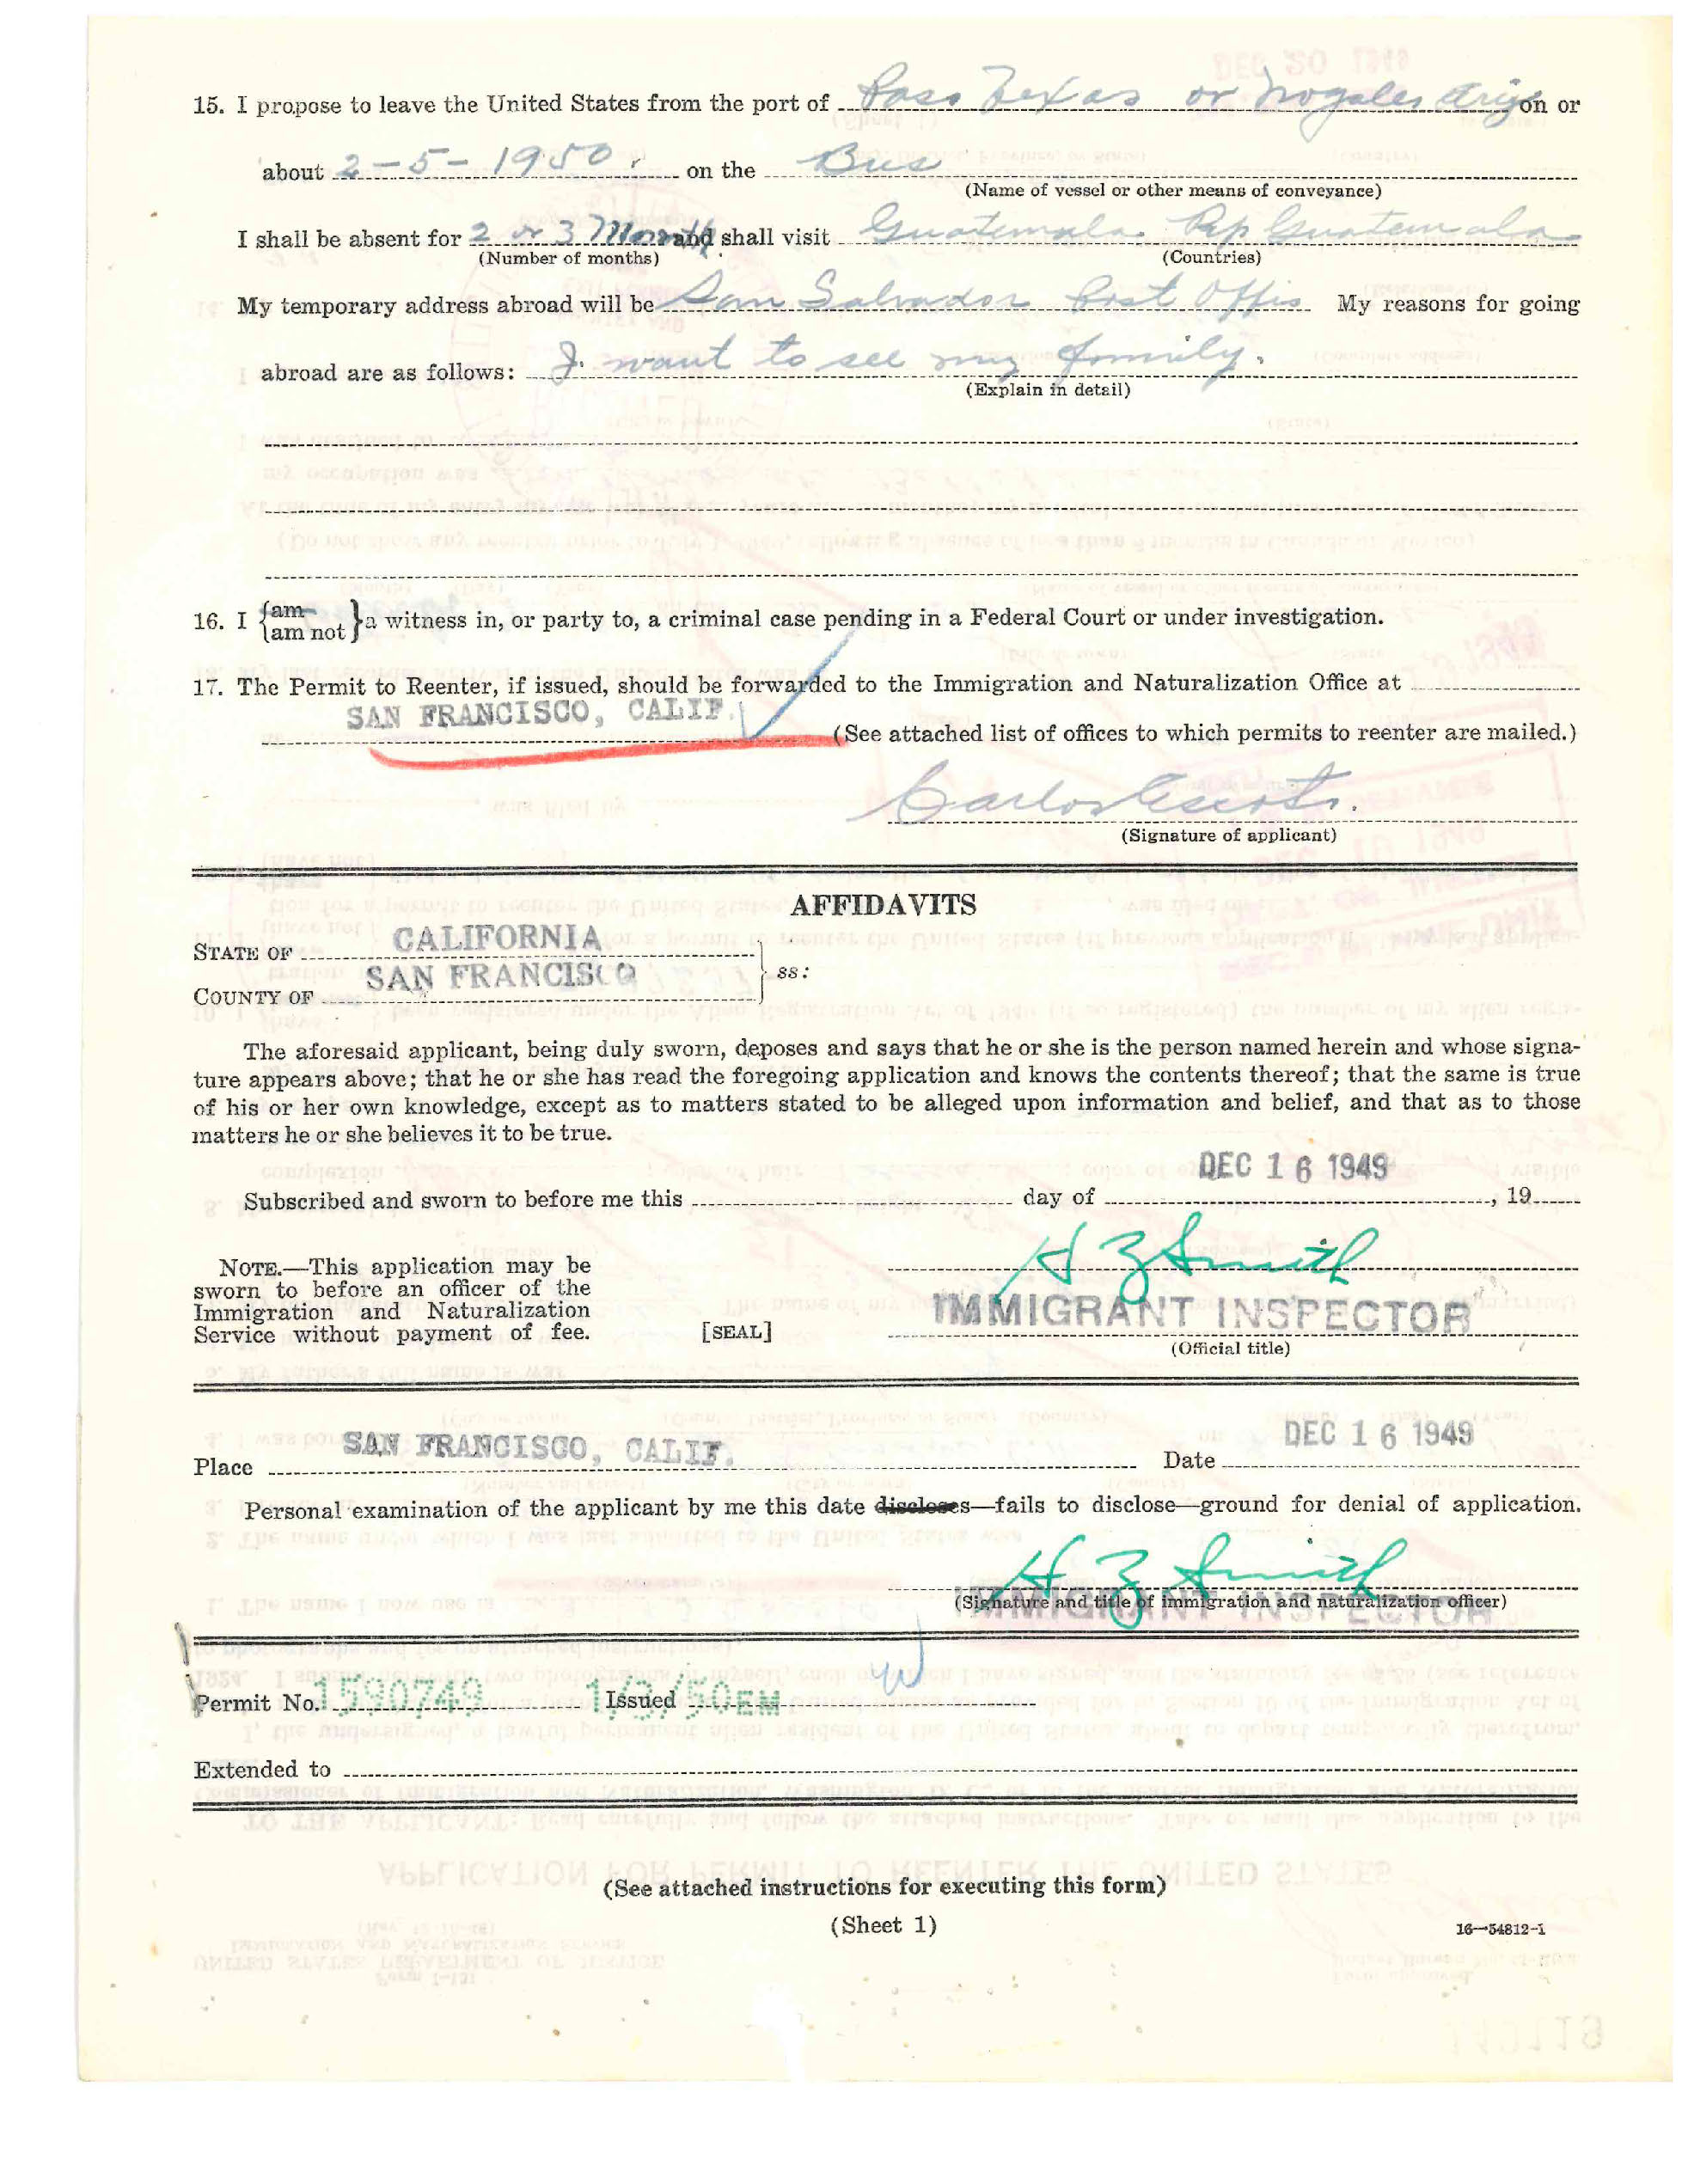 15. I propose to leave the United States from the port of Paso Texas or Nogales Arizon or
about 2-5-1950 on the Bus
(Name of vessel or other means of conveyance)
I shall be absent for 2 or 3 Month and shall visit Guatemala Rep Guatemala
(Number of months) (Countries)
My temporary address abroad will be San Salvador Post Offis My reasons for going
abroad are as follows: I want to see my family.
(Explain in detail)
16. I {am am not} a witness in, or party to, a criminal case pending in a Federal Court or under investigation.
17. The Permit to Reenter, if issued, should be forwarded to the Immigration and Naturalization Office at
SAN FRANCISCO, CALIF.
(See attached list of offices to which permits to reenter are mailed.)
Carlos
(Signature of applicant)
AFFIDAVITS
STATE OF CALIFORNIA
ss:
COUNTY OF SAN FRANCISCO
The aforesaid applicant, being duly sworn, deposes and says that he or she is the person named herein and whose signa-
ture appears above; that he or she has read the foregoing application and knows the contents thereof; that the same is true
of his or her own knowledge, except as to matters stated to be alleged upon information and belief, and that as to those
matters he or she believes it to be true.
DEC 16 1949
Subscribed and sworn to before me this day of , 19
H Z Smith
NOTE.—This application may be
sworn to before an officer of the
Immigration and Naturalization
Service without payment of fee.
[SEAL]
IMMIGRANT INSPECTOR
(Official title)
Place SAN FRANCISCO, CALIF. Date DEC 16 1949
Personal examination of the applicant by me this date discloses—fails to disclose—ground for denial of application.
H Z Smith
IMMIGRANT INSPECTOR
(Signature and title of immigration and naturalization officer)
Permit No. 1590749 Issued 1/3/50EM
Extended to
(See attached instructions for executing this form)
(Sheet 1)
16—54812-1